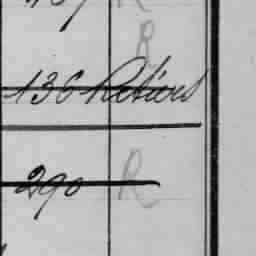 R
136 Retiers
290 R